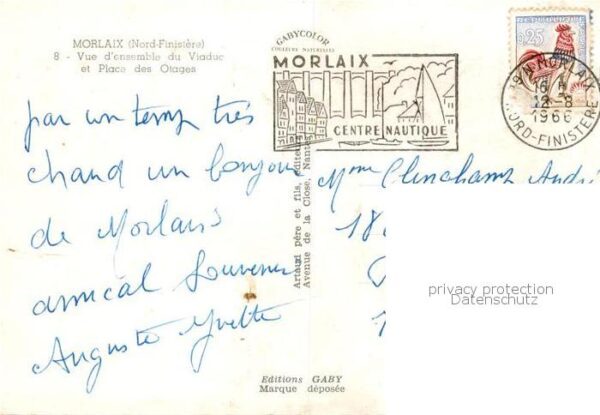 MORLAIX (Nord-Finistère)
8 - Vue d'ensemble du Viaduc
et Place des Otages
GABYCOLOR
COULEURS NATURELLES
MORLAIX
CENTRE NAUTIQUE
0,25
MORLAIX
16 H
12-8
1966
NORD-FINISTERE
par un temps très
chaud un bonjour
de Morlaix
amical Souvenir
Auguste Yvette
Artaud père et fils, éditeurs
Avenue de la Close, Nantes
Mme Clinchamp André
18
privacy protection
Datenschutz
Editions GABY
Marque déposée